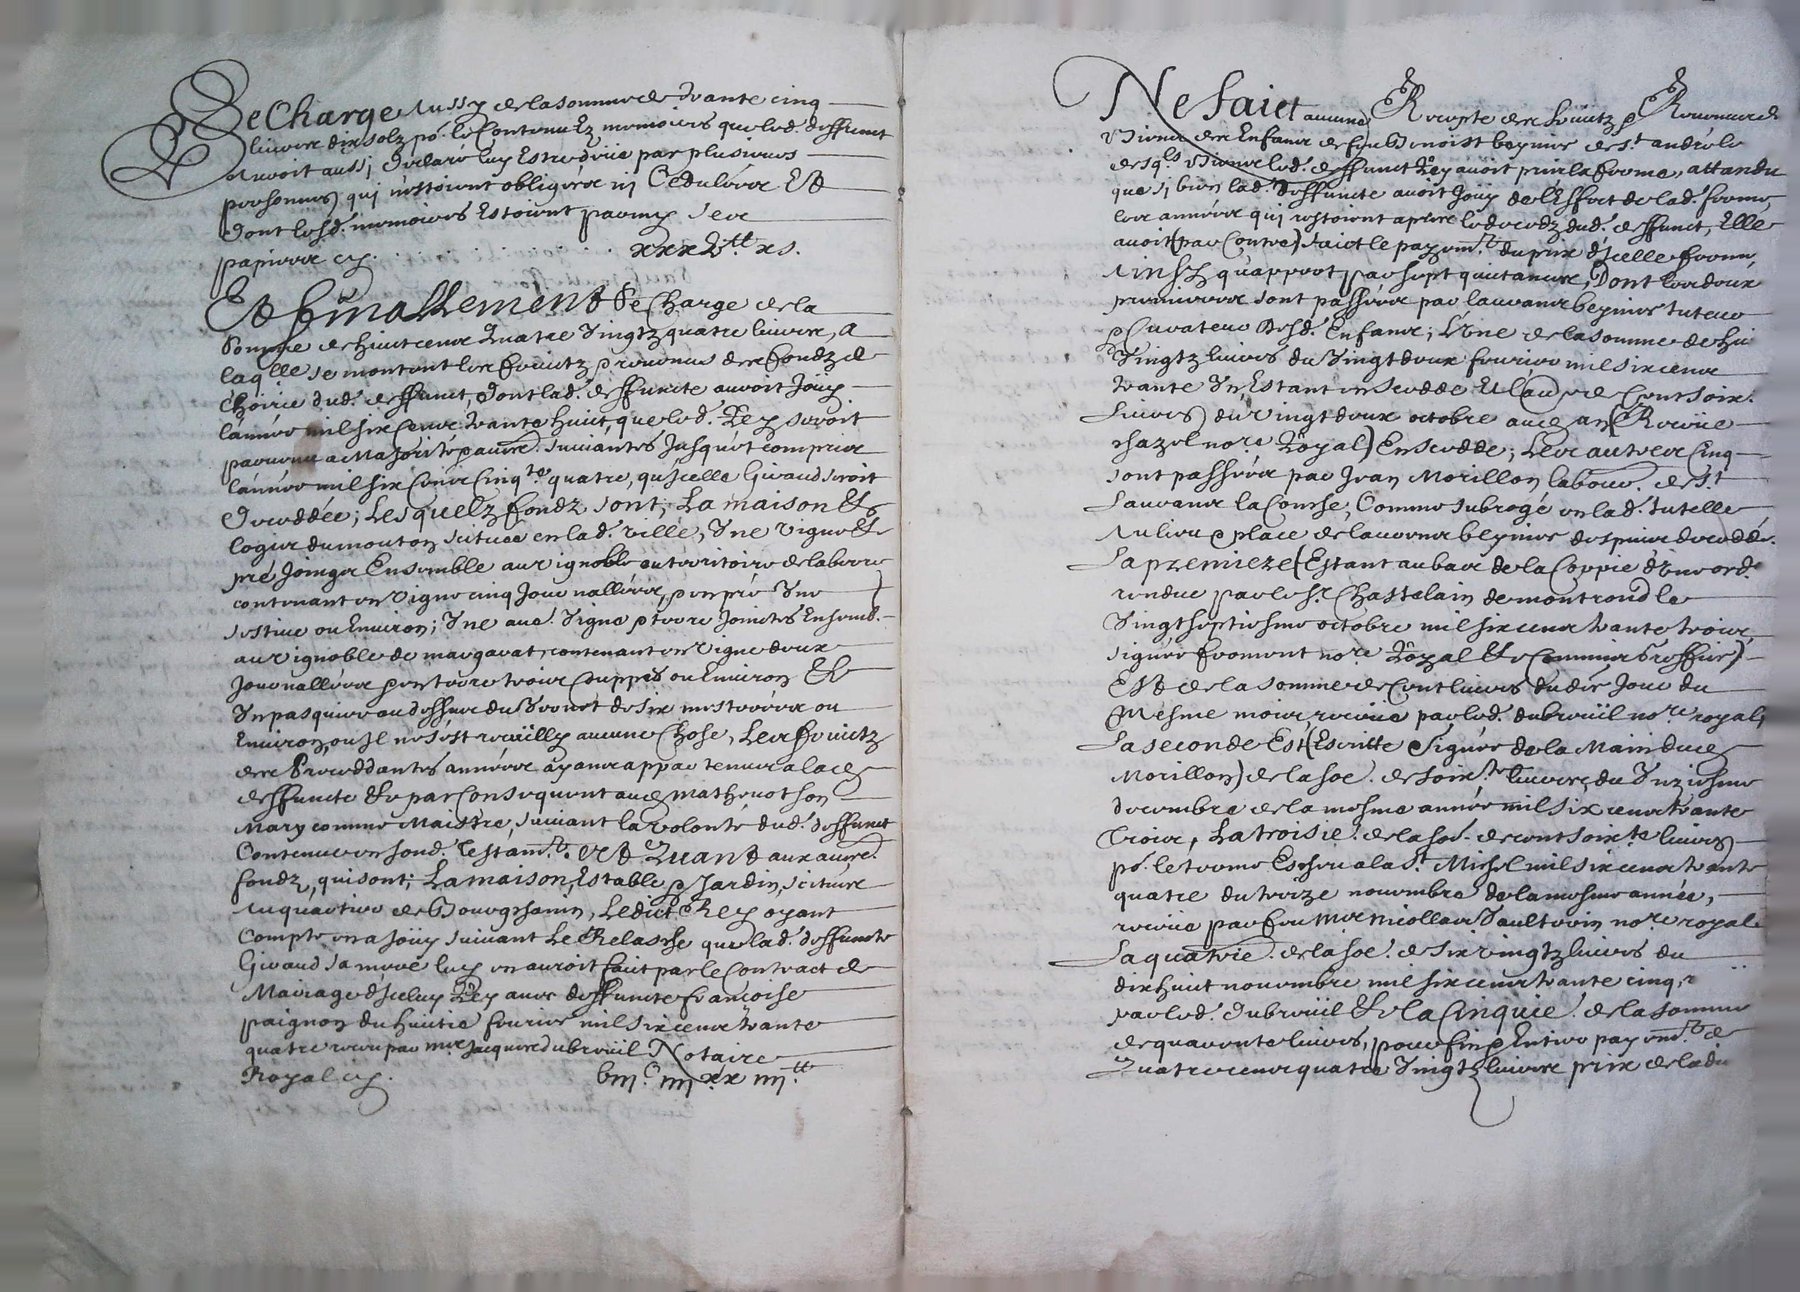 Se Charge Aussy de la somme de trante cinq
livres dix solz po.r le Contenu Ez memoires que led. deffunct
Auroit aussi declaré luy Estre deüe par plusieurs
personnes qui n'estoient obligées ny Cedulées Et
Dont lesd. memoires Estoient parmy ses
papiers cy. xxxv.tt xs.
Et finallement Se Charge de la
Somme de huit cens Quatre vingtz quatre livres, A
laq.lle se montent les fruitz & revenus des fondz de
l'hoirie dud. deffunct, Dont lad. deffuncte auroit Joüy
l'année mil six Cens trante huit, que led. Rey seroit
parvenu a Majorité & autres suivantes Jusques et compris
l'année mil six Cens Cinq.te quatre, qu'Jcelle Giraud seroit
Decedée; Lesquelz fondz sont; La maison Et
logis du mouton scituée en lad. ville, Vne vigne Et
pré Joingz Ensemble au vignoble ou territoire de la
contenant en vigne cinq Journallées, & en pré Vne
ou Environ; Vne au.e Vigne & terre Jointes Ensemb.
au vignoble de margarat contenant en vigne deux
Journallées & en terre trois Couppes ou Environ Et
Vn pasquier au dessus du de six mesterées ou
Environ, ou Jl ne s'est recüilly aucune Chose, Les fruitz
des Precedantes années ayans appartenus a lad.
deffuncte Et par Consequent aud. mathevot son
Mary comme Maistre, suivant la volonté dud. deffunct
Contenue en sond. Testam.t. Et Quant aux autres
fondz, qui sont; La maison, Estable & Jardin, scitués
Au quartier de Bourgchanin, Ledict Rey ayant
Compte en a Joüy suivant Le Relasche que lad. deffuncte
Giraud sa mere luy en auroit faict par le Contract de
Mariage d'Jceluy Rey avec deffuncte françoise
paignon du huitie. fevrier mil six cens trante
quatre receu par m.re Jacques dubreüil Notaire
Royal cy. viij.c iiij xx iiij.tt
Ne Faict aucune Recepte des fruictz & Revenus de
Biens des Enfans de feu Benoist beynier de s.t andré le
desq.ls Biens led. deffunct Rey avoit prins la ferme, attandu
que si bien lad. Deffuncte avoit Joüy de l'Effect de lad. ferme
les années qui restoient apres le decedz dud. deffunct, Elle
avoit (par Contre) faict le payem.t du prix d'Jcelle ferme,
Ainsy qu'appert par sept quictances, Dont les deux
premieres sont passées par laurans beynier tuteur
& Curateur Desd. Enfans; L'vne de la somme de huit
Vingtz livres du Vingtdeux fevrier mil six cens
trante Vn, Estant en scedde Et l'au.re de Cent soix.te
livres) du vingt deux octobre aud. an (Receüe
chazel no.re Royal) En scedde; Les autres Cinq
sont passées par Jean Morillon labour. de s.t
Laurans la Conche, Comme subrogé en lad. tutelle
Au lieu & place de laurans beynier despuis decedé.
La premieze (Estant au bas de la Coppie d'vne ord.
rendue par le s.r Chastelain de montrond le
Vingtseptiesme octobre mil six cens trante trois,
signée fromont no.re Royal Et Commis Greffier)
Est de la somme de Cent livres du dix Jour du
Mesme mois receüe par led. dubreüil no.re royal,
La seconde Est (Escritte & signée de la Main dud.
Morillon) de la so.e de soix.te livres, du Vnziesme
decembre de la mesme année mil six cens trante
Trois, La troisie. de la so.e de cent soix.te livres
po.r le terme Escheu a la s.t Michel mil six cens trante
quatre du treize novembre de la mesme année,
receüe par feu m.re nicollas Vaultrin no.re royal
La quatrie. de la so.e de six vingtz livres du
dix huit novembre mil six cens trante cinq,
par led. dubreüil Et la Cinquie. de la somme
de quarente livres, pour fin & Entier payem.t de
Quatre cens quatre Vingtz livres prix de lad.